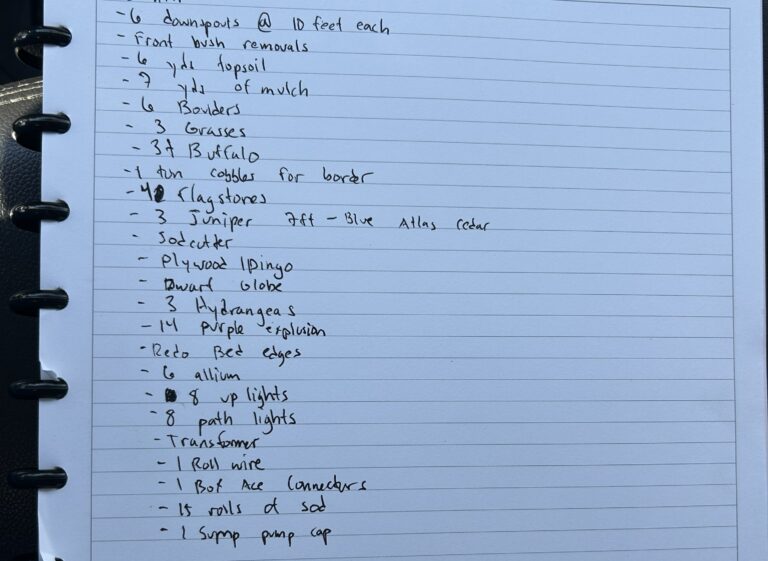 - 6 downspouts @ 10 feet each
- Front bush removals
- 6 yds topsoil
- 7 yds of mulch
- 6 Boulders
- 3 Grasses
- 3 Buffalo
- 1 tun cobbles for border
- Flagstones
- 3 Juniper 7ft - Blue Atlas cedar
- Sodcutter
- Plywood / Dingo
- Dwarf Globe
- 3 Hydrangeas
- 14 purple explusion
- Redo Bed edges
- 6 allium
- 8 up lights
- 8 path lights
- Transformer
- 1 Roll wire
- 1 Bot Ace Connectors
- 15 rolls of sod
- 1 Sump pump cap